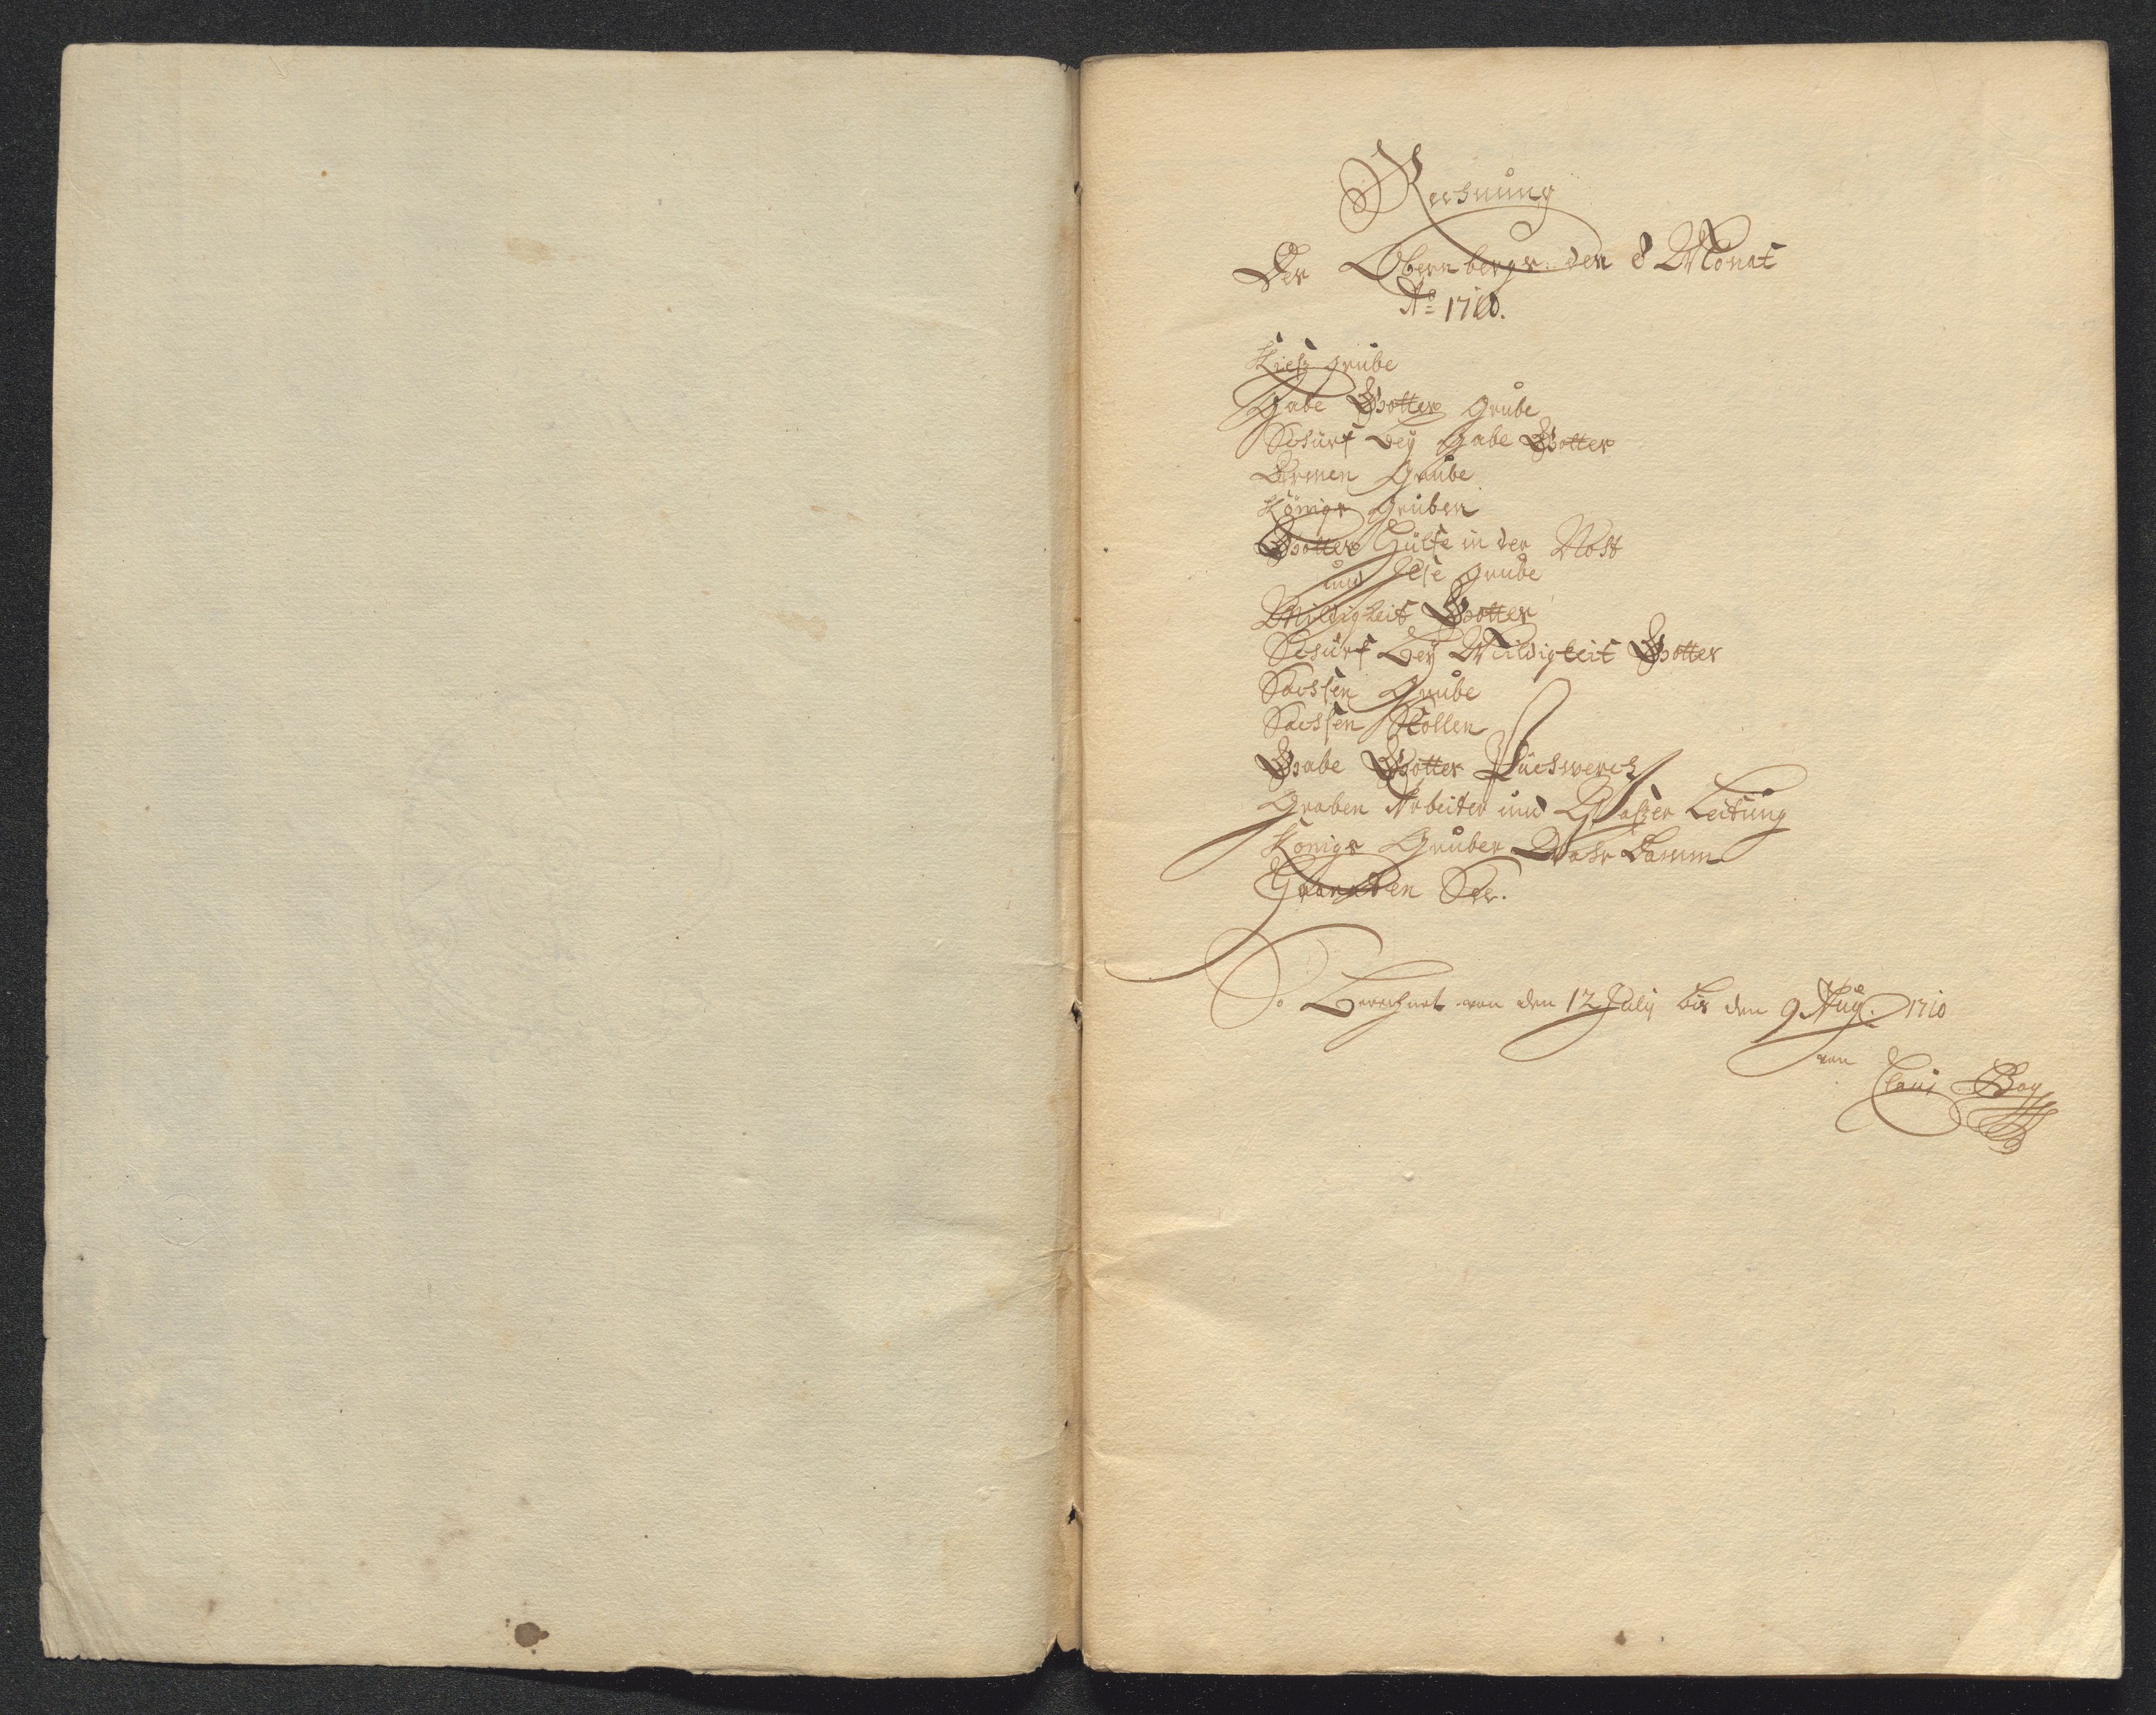 Rechnung
Der Obernbergs. den 8 Monat
Ao 1710.
Kiesz grube
Gabe Gottes grube
Schürf bey Gabe Gottes
Armen Grube
Königs Gruben
Gottes Hülfe in der Noht
und Else grube
Mildigkeit Gottes
Schürf bey Mildigkeit Gottes
Sachsen Grube
Sachsen Stollen
Gabe Gottes Puchwerck
Graben Arbeiter und Waszer Leitung
Königs Gruben Damm
See.
So berechnet von den 12 July bis den 9 Aug. 1710
von
Claus Bay